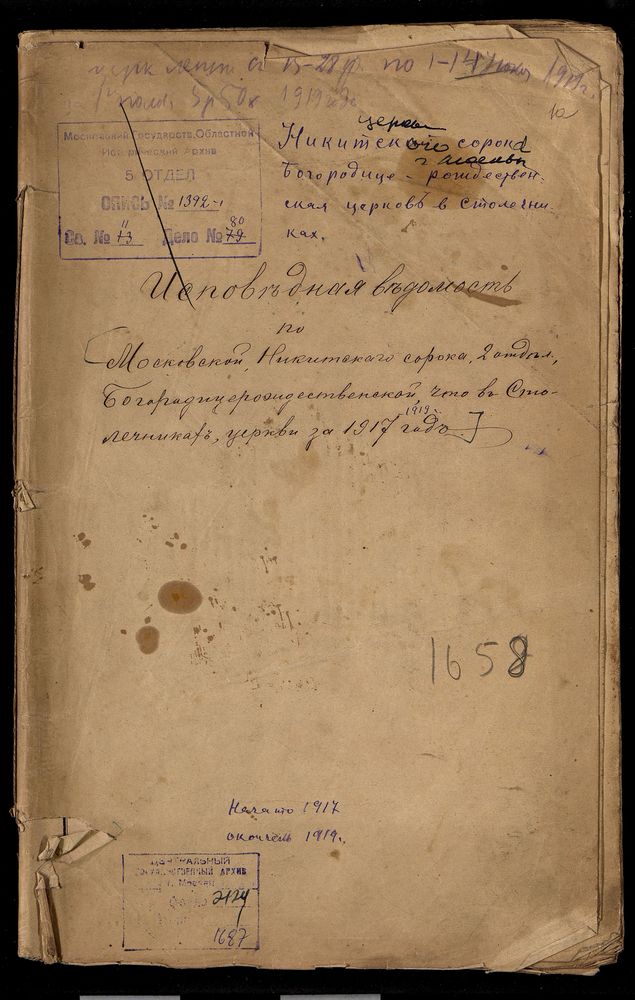 по 1-14 1919г.
1919 года
1а
Московский Государств. Областной
Исторический Архив
5 ОТДЕЛ
ОПИСЬ № 1392-1
Св. № 13 11 Дело № 79 80
церкви
Никитского сорока
г Москвы
Богородице-рождествен-
ская церковь в Столешни-
ках.
Исповѣдная вѣдомость
по
[Московской, Никитскаго сорока, 2 отдѣл.,
Богородицерождественской, что въ Сто-
лечникахъ, церкви за 1917 - 1919 г. годъ.]
1658
Начато 1917
окончен 1919г.
ЦЕНТРАЛЬНЫЙ
ГОСУДАРСТВЕННЫЙ АРХИВ
г. Москвы
Фонд 2124
1687